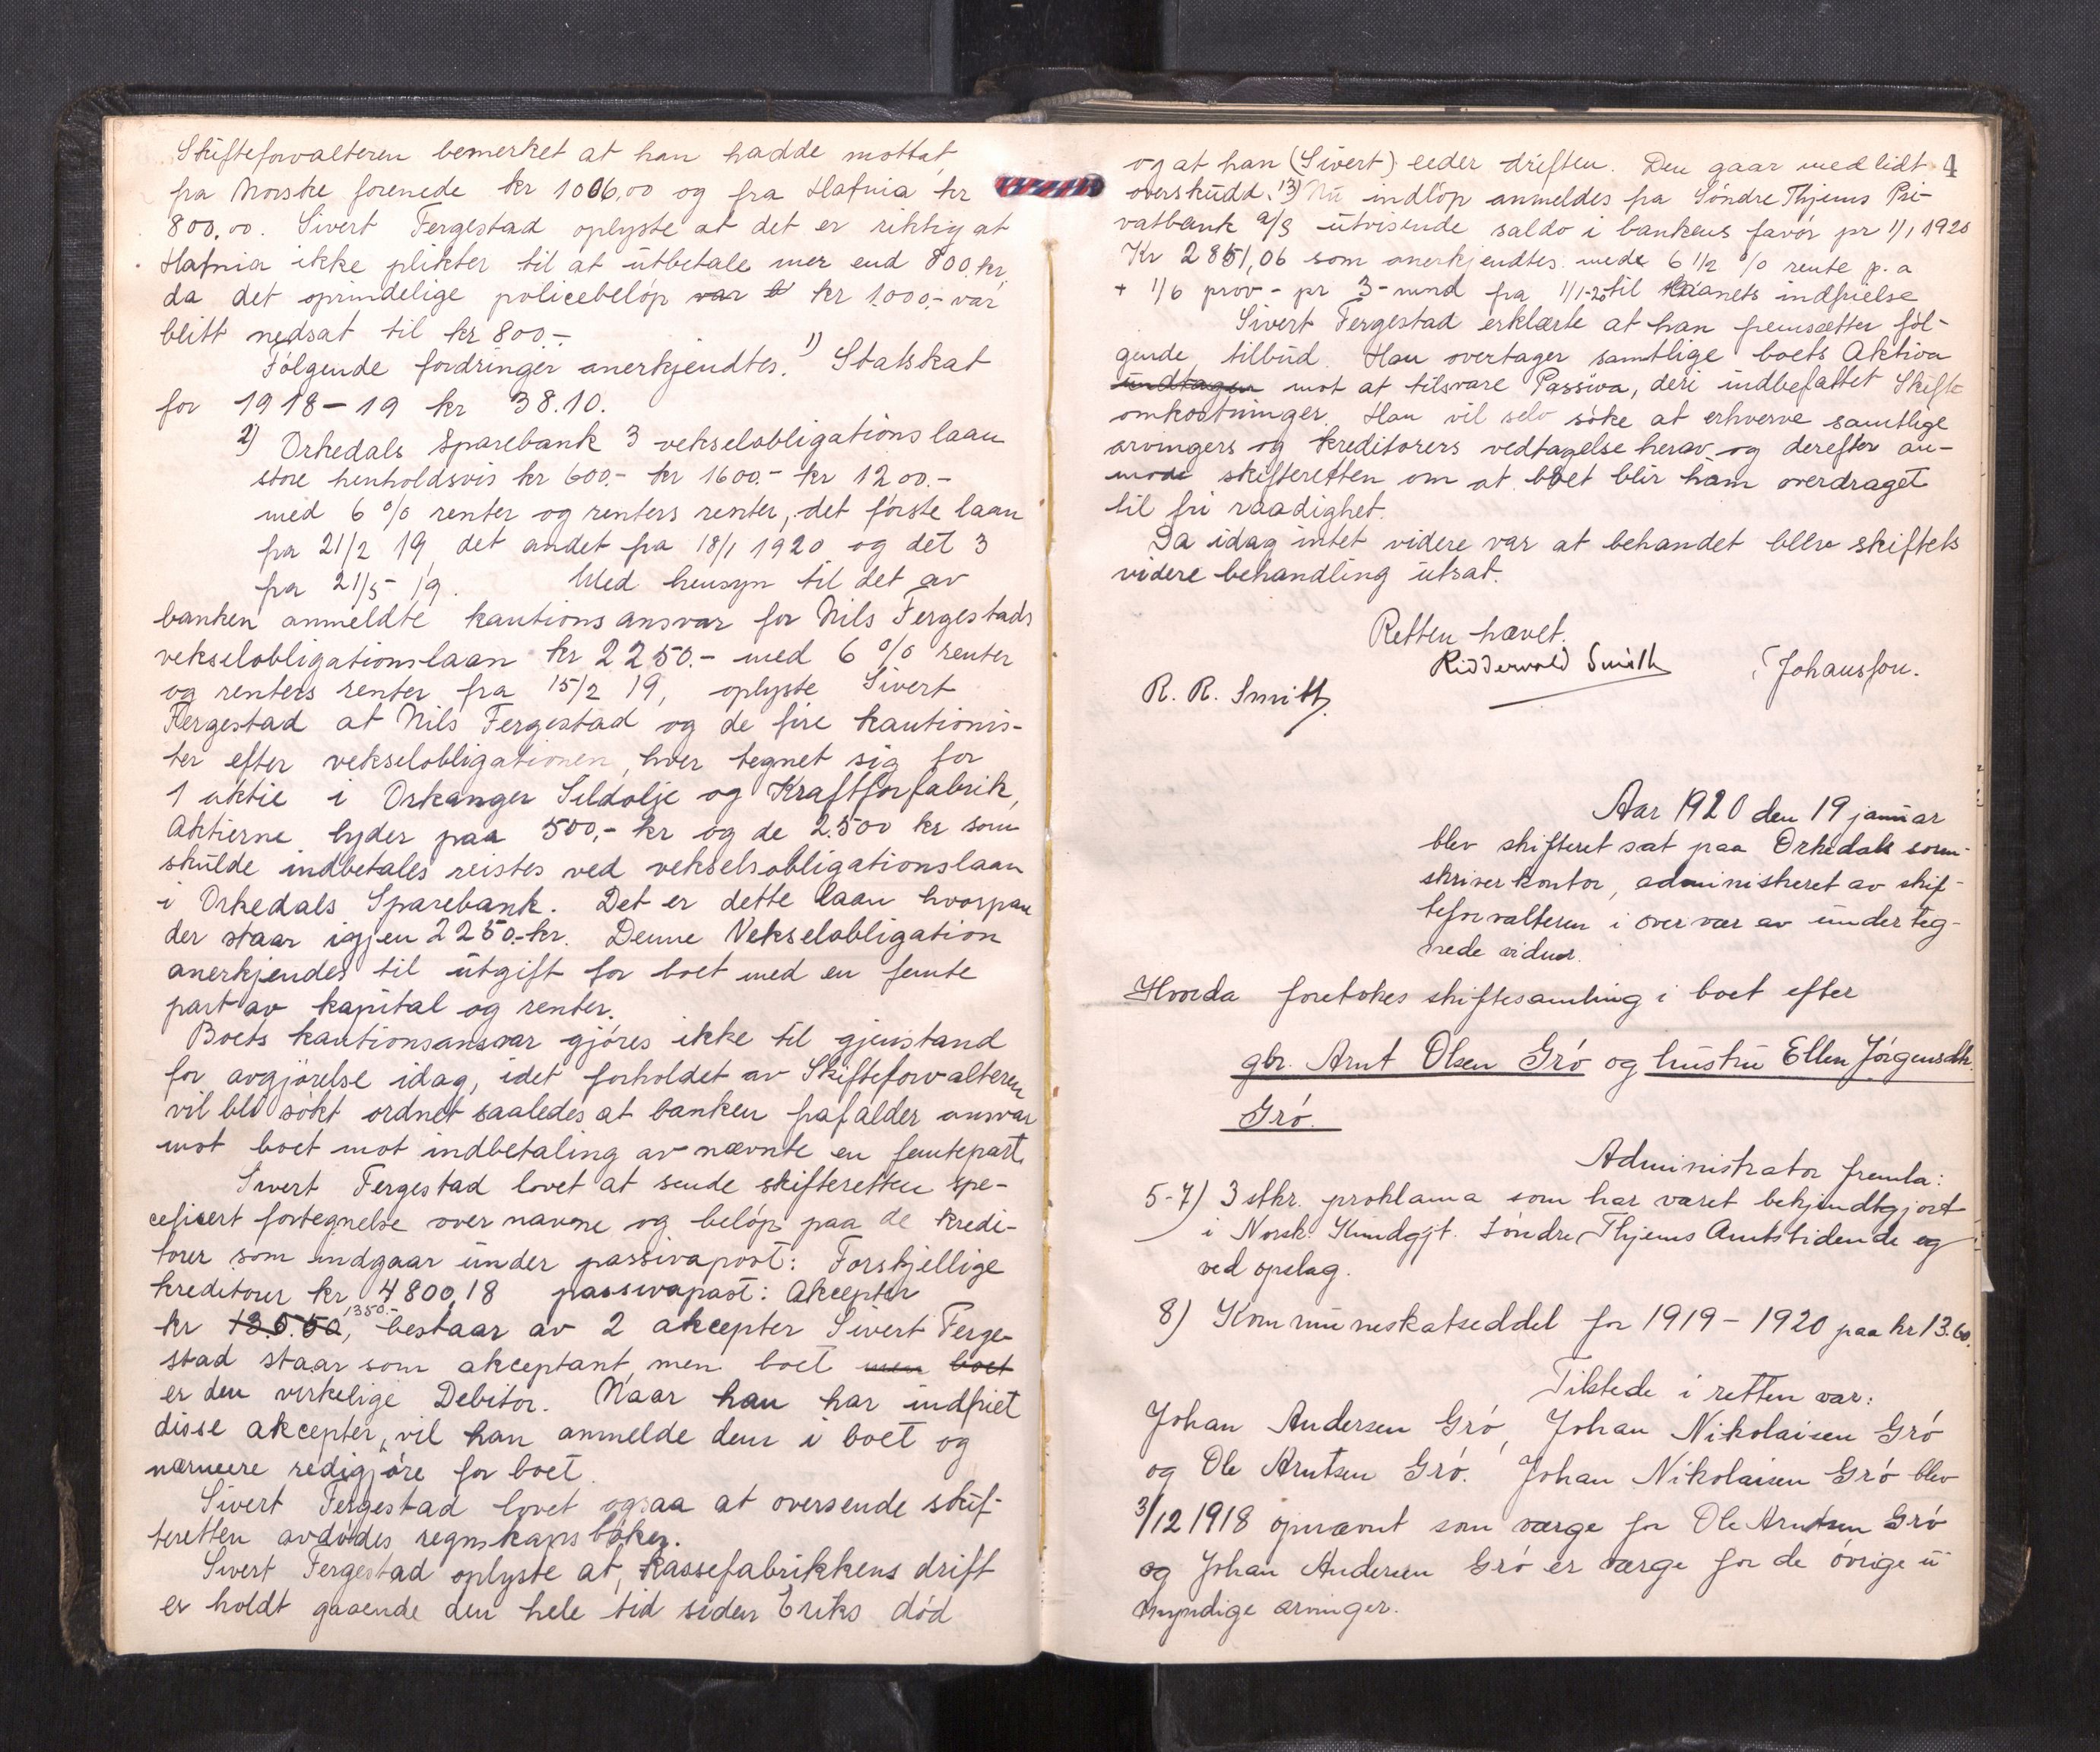 Skifteforvalteren bemerket at han hadde mottat
fra Norske forenede kr 1006,00 og fra Hafnia kr
800,00. Sivert Fergestad oplyste at det er riktig at
Hafnia ikke plikter til at utbetale mer end 800 kr,
da det oprindelige policebeløp var kr 1.000,- var
blitt nedsat til kr 800.-
Følgende fordringer anerkjendtes. 1) Statskat
for 1918-19 kr 38.10.
2) Orkedals Sparebank 3 vekselobligationslaan
store henholdsvis kr 600.- kr 1600.- kr 1200.-
med 6 % renter og renters renter, det første laan
fra 21/2 19 det andet fra 18/1 1920 og det 3
fra 21/5 19. Med hensyn til det av
banken anmeldte kautionsansvar for Nils Fergestads
vekselobligationslaan kr 2250.- med 6 % renter
og renters renter fra 15/2 19, oplyste Sivert
Fergestad at Nils Fergestad og de fire kautionis-
ter efter vekselobligationen, hver tegnet sig for
1 aktie i Orkanger Sildolje og Kraftforfabrik,
Aktierne lyder paa 500,- kr og de 2.500 kr som
skulde indbetales reistes ved vekselsobligationslaan
i Orkedals Sparebank. Det er dette laan hvorpaa
der staar igjen 2250.-kr. Denne Vekselobligation
anerkjendes til utgift for boet med en femte
part av kapital og renter.
Boets kautionsansvar gjøres ikke til gjenstand
for avgjørelse idag, idet forholdet av Skifteforvalteren
vil bli søkt ordnet saaledes at banken frafalder ansvar
mot boet mot indbetaling av nævnte en femtepart.
Sivert Fergestad lovet at sende skifteretten spe-
cificert fortegnelse over navne og beløp paa de kredi-
torer som indgaar under passivapost: Forskjellige
kreditorer kr 4800,18 passivapost: Akcepter
kr 13.5.50, 1350.- bestaar av 2 akcepter Sivert Ferge-
stad staar som akceptant, men boet men boet
er den virkelige Debitor. Naar han har indfriet
disse akcepter, vil han anmelde dem i boet og
nærmere redigjøre for boet.
Sivert Fergestad lovet ogsaa at oversende skif-
teretten avdødes regnskapsbøker.
Sivert Fergestad oplyste at, kassefabrikkens drift
er holdt gaaende den hele tid siden Eriks død
4
og at han (Sivert) leder driften. Den gaar med lidt
overskudd. 13) Nu indløp anmeldes fra Søndre Thjems Pri-
vatbank a/s utvisende saldo i bankens favør pr 1/1 1920
Kr 2851,06 som anerkjendtes med 6 1/2 % rente p.a
+ 1/6 prov- pr 3-mnd fra 1/1-20 til laanets indfrielse
Sivert Fergestad erklærte at han fremsætter føl-
gende tilbud. Han overtager samtlige boets Aktiva
undtagen mot at tilsvare Passiva, deri indbefattet Skifte
omkostninger. Han vil selv søke at erhverve samtlige
arvingers og kreditorers vedtagelse herav og derefter an-
mode skifteretten om at boet blir ham overdraget
til fri raadighet.
Da idag intet videre var at behandet blev skiftets
videre behandling utsat.
Retten hævet.
Ridderwold Smith
Johansson.
R. R. Smith
Aar 1920 den 19 januar
blev skifteret sat paa Orkedals soren-
skriverkontor, administreret av skif-
teforvalteren i overvær av underteg-
nede vidner.
Hvorda foretokes skiftesamling i boet efter
gbr. Arnt Olsen Grø og hustru Ellen Jørgensdtr.
Grø.
Administrator fremla:
5-7) 3 stkr. proklama som har været bekjendtgjort
i Norsk Kundgjt. Søndre Thjems Amtstidende og
ved opslag.
8) Kommuneskatseddel for 1919-1920 paa kr 13.60.
Tilstede i retten var:
Johan Andersen Grø, Johan Nikolaisen Grø
og Ole Arntsen Grø. Johan Nikolaisen Grø blev
3/12 1918 opnævnt som værge for Ole Arntsen Grø
og Johan Andersen Grø er værge for de øvrige u
myndige arvinger.